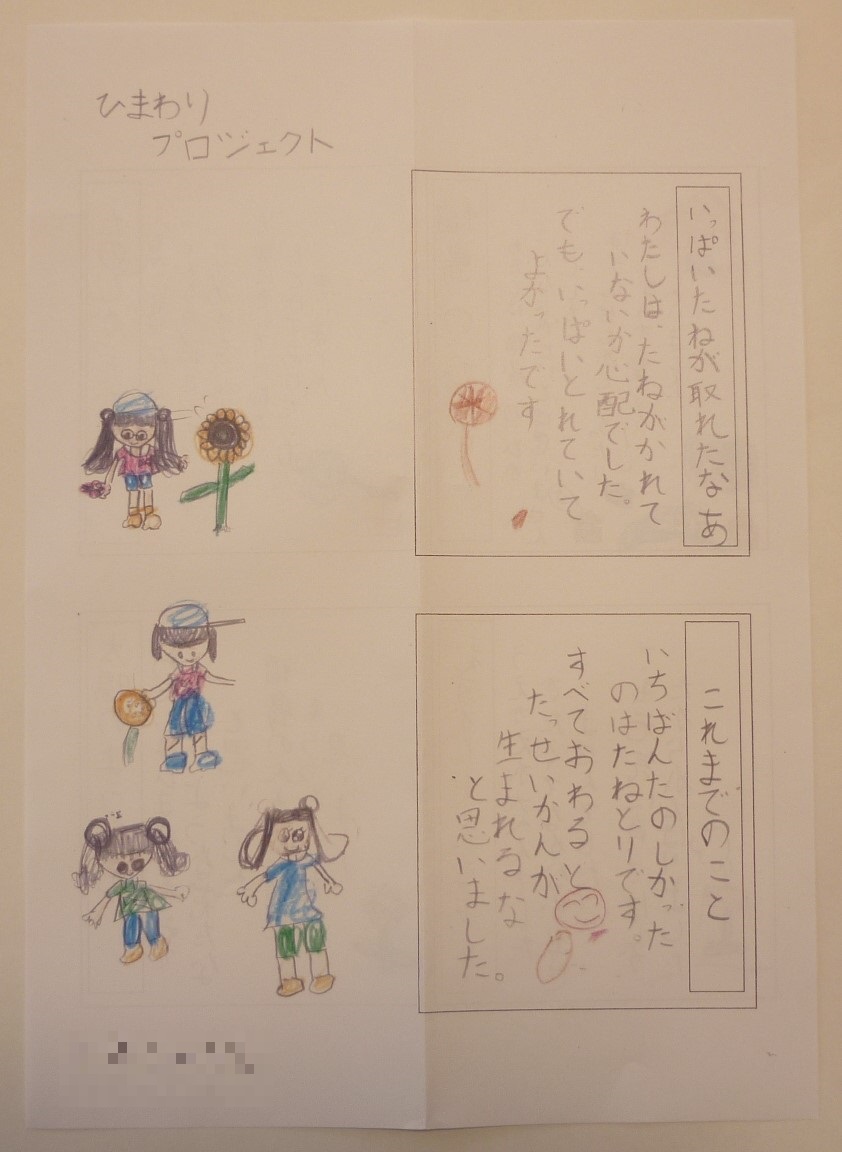 ひまわり
プロジェクト
いっぱいたねが取れたなあ
わたしは、たねがかれて
いないか心配でした。
でも、いっぱいとれていて
よかったです
これまでのこと
いちばんたのしかった
のはたねとりです。
すべておわると
たっせいかんか
生まれるな
と思いました。